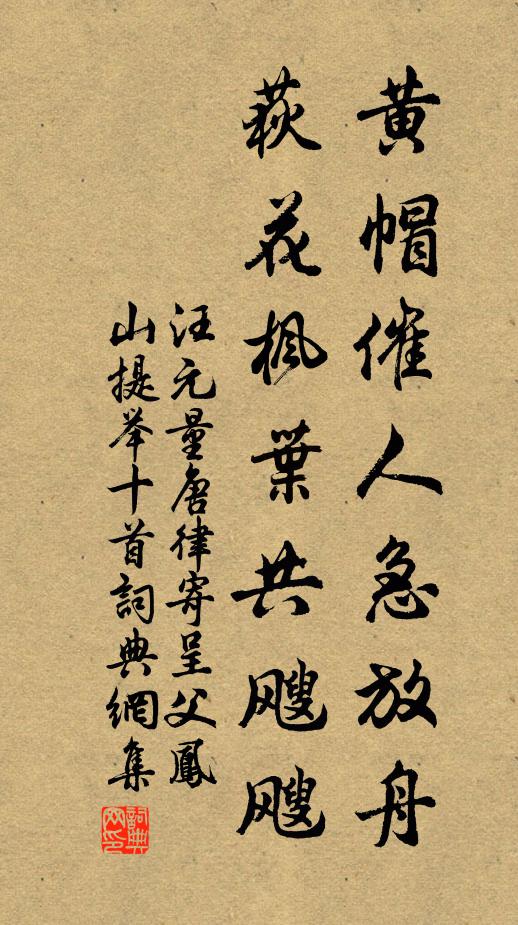 黄帽催人急放舟
萩花枫葉共飕飕
汪元量唐律寄呈父鳳
山提举十首詞典網集
詞典网印